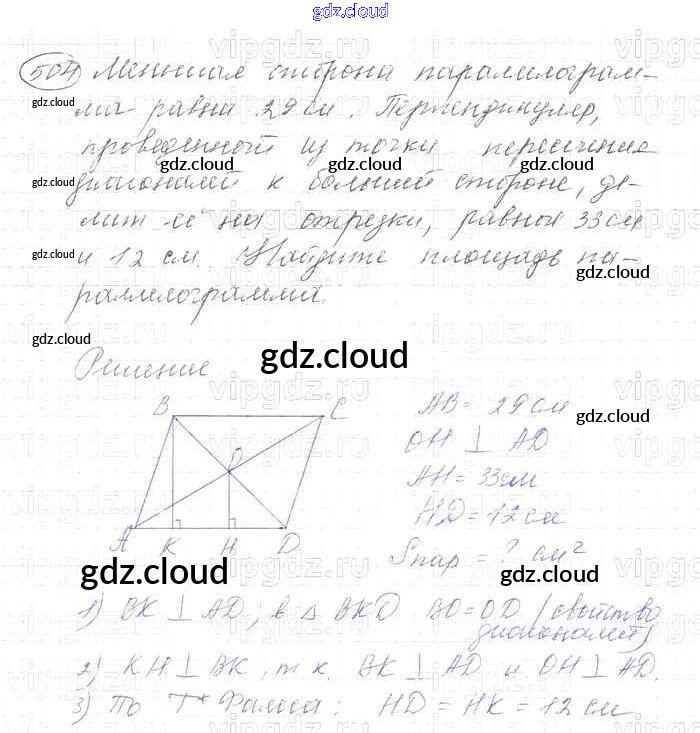 gdz.cloud
504) Меньшая сторона параллелограм-
gdz.cloud
ма равна 29 см. Перпендикуляр,
gdz.cloud
проведенной из точки пересечения
gdz.cloud gdz.cloud gdz.cloud
диагоналей к большей стороне, де-
лит её на отрезки, равной 33 см
gdz.cloud
и 12 см. Найдите площадь па-
gdz.cloud
раллелограмма.
gdz.cloud
Решение
gdz.cloud
B C
AB = 29 см
gdz.cloud
OH ⊥ AD
O
AH = 33 см
HD = 12 см
A K H D
Sпар = ? см²
gdz.cloud gdz.cloud
1) BK ⊥ AD; в △ BKD BO = OD (свойство
диагоналей)
gdz.cloud gdz.cloud
2) KH ⊥ BK, т.к. BK ⊥ AD и OH ⊥ AD.
3) По Т* Фалеса: HD = HK = 12 см